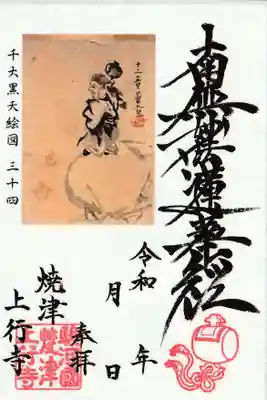 南無妙法蓮華経
令和 年
月 日
奉拝
焼津
上行寺
千大黒天絵図 三十四
駿河國
焼津
上行寺